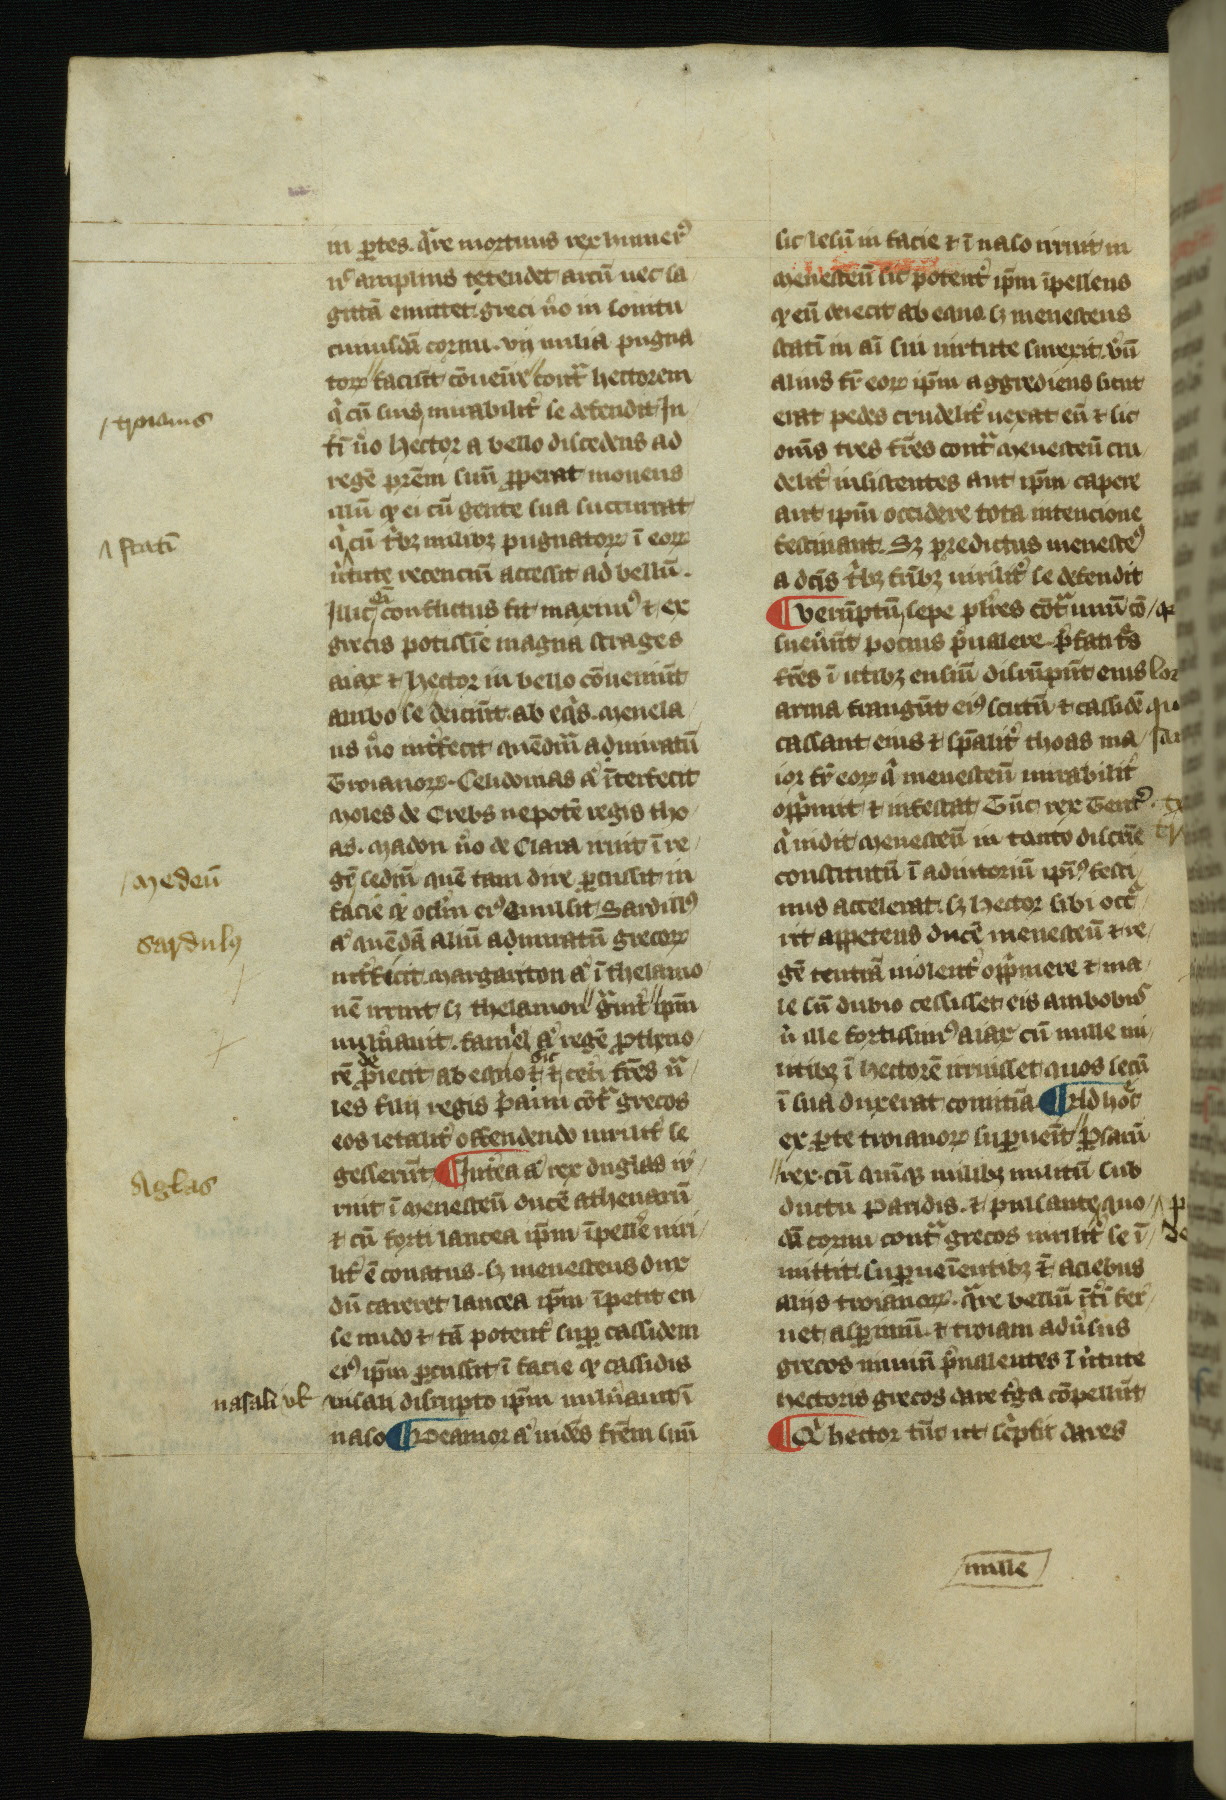 in ꝑtes. qͣre mortuus rex humerꝰ
nͨ ampliꝰ tetendet arcū nec sa
gittā emittet. greci ṽo in sonitu
cuiusdā cornu. vij milia pugna
toꝝ faciūt cōuenire contͣ hectorem
qͥ cū suis mirabilitˀ se defendit. In
tͥ ṽo hector a bello discedens ad
regē prēm suū ꝓperat mouens
illū qͥ ei cū gente sua succurrat
qͥ cū tͥbꝫ milibꝫ pugnatoꝝ ī eoꝝ
ṽtute recenciū accessit ad bellū.
Illic eī conflictus fit maximꝰ ⁊ ex
grecis potissīe magna strages
aiax ⁊ hector in bello cōueniūt
ambo se deiciūt ab eqͥs. Menela
us ṽo intͥfecit quēdā admiratū
Troianoꝝ. Celidomas aͧ ītͥfecit
Moles de Orebs nepotē regis tho
as. Madon ṽo de Clara irruit ī re
gē sedm̄ quē tam dire ꝑcussit in
facie qͥ oclm̄ eiꝰ euulsit. Sardillꝰ
aͧ quēdā aliū admiratū grecoꝝ
intͥfecit. Margariton aͧ ī thelamo
nē irruit sꝫ thelamon gͣuitˀ ip̄m
uulnͥauit. famēl aͧ regē ꝓtheno
rē ꝓiecit ab equo ⁊ cetͥi frēs nͣ
les filij regis pͥami cōtͣ grecos
eos letalitˀ offendendo uirilitˀ se
gesserūt. ¶ Intͥea aͧ rex duglas ir
ruit ī Menesteū ducē athenarū
⁊ cū forti lancea ip̄m īpellͥe uiri
litˀ ē conatus. sꝫ menesteus dux
dū careret lancea ip̄m īpetit en
se nudo ⁊ tā potentˀ suꝑ cassidem
eiꝰ ip̄m ꝑcussit ī facie qͥ cassidis
nisali disrupto ip̄m uulnͥauit ī
naso ¶ Deamor aͧ uidēs frēm suū
sic lesū in facie ⁊ ī naso irruit in
Menesteū sic potentˀ ip̄m īpellens
qͥ eū deiecit ab equo. sꝫ menesteus
statī in aī sui uirtute surexit. Vn̄
alius fr̄ eoꝝ ip̄m aggrediens sicut
erat pedes crudelitˀ uexat eū ⁊ sic
om̄s tres frēs contͣ Menesteū cru
delitˀ insistentes aut ip̄m capere
aut ip̄m occidere tota intencione
festinant. Sꝫ predictus menesteꝰ
a dcīs tͥbꝫ fr̄ibꝫ uirilitˀ se defendit
¶ Verūptū sepe plͥres cōtͣ unū cō
sueuͥūt pocius pͥualere. pͥfati tͥs
frēs ī ictibꝫ ensiū disrūpūt eius lor
arma frangūt eiꝰ scutū ⁊ cassidē
cassant eius ⁊ sp̄alitˀ thoas ma
ior fr̄ eoꝝ qͥ menesteū mirabilitˀ
opp̄mit ⁊ infestat. Tūc rex Teutͥ.
qͥ uidit Menesteū in tanto discͥe
constitutū ī adiutoriū ipīꝰ festi
nus accelerat. sꝫ hector sibi occͣ
rit appetens ducē menesteū ⁊ re
gē teutrā uiolentˀ opp̄mere ⁊ ma
le sū dubio cessisset eis ambobus
nͥ ille fortissimꝰ aiax cū mille mi
litibꝫ ī hectorē irruisset quos secū
ī sua duxerat comitiā ¶ Ad hoc̄
ex ꝑte troianoꝝ suꝑuenit ꝑsarū
rex. cū quinqꝫ milibꝫ militū sub
ductu Paridis. ⁊ pulsante quo
dā cornu contͣ grecos uirilitˀ se ī
mittit. suꝑueīentibꝫ cͥ aciebus
alijs troianoꝝ. qͣre bellū ītͥi fer
uet asꝑrimū. ⁊ troiani adūsus
grecos nimiū pͥualentes ī ṽtute
hectoris grecos dare tͥga cōpellūt
¶ Qͥ hector tūc ut scͥpsit dares
troianus
statī
Medeū
Sardulꝰ
Aglas
nasali uł
mille